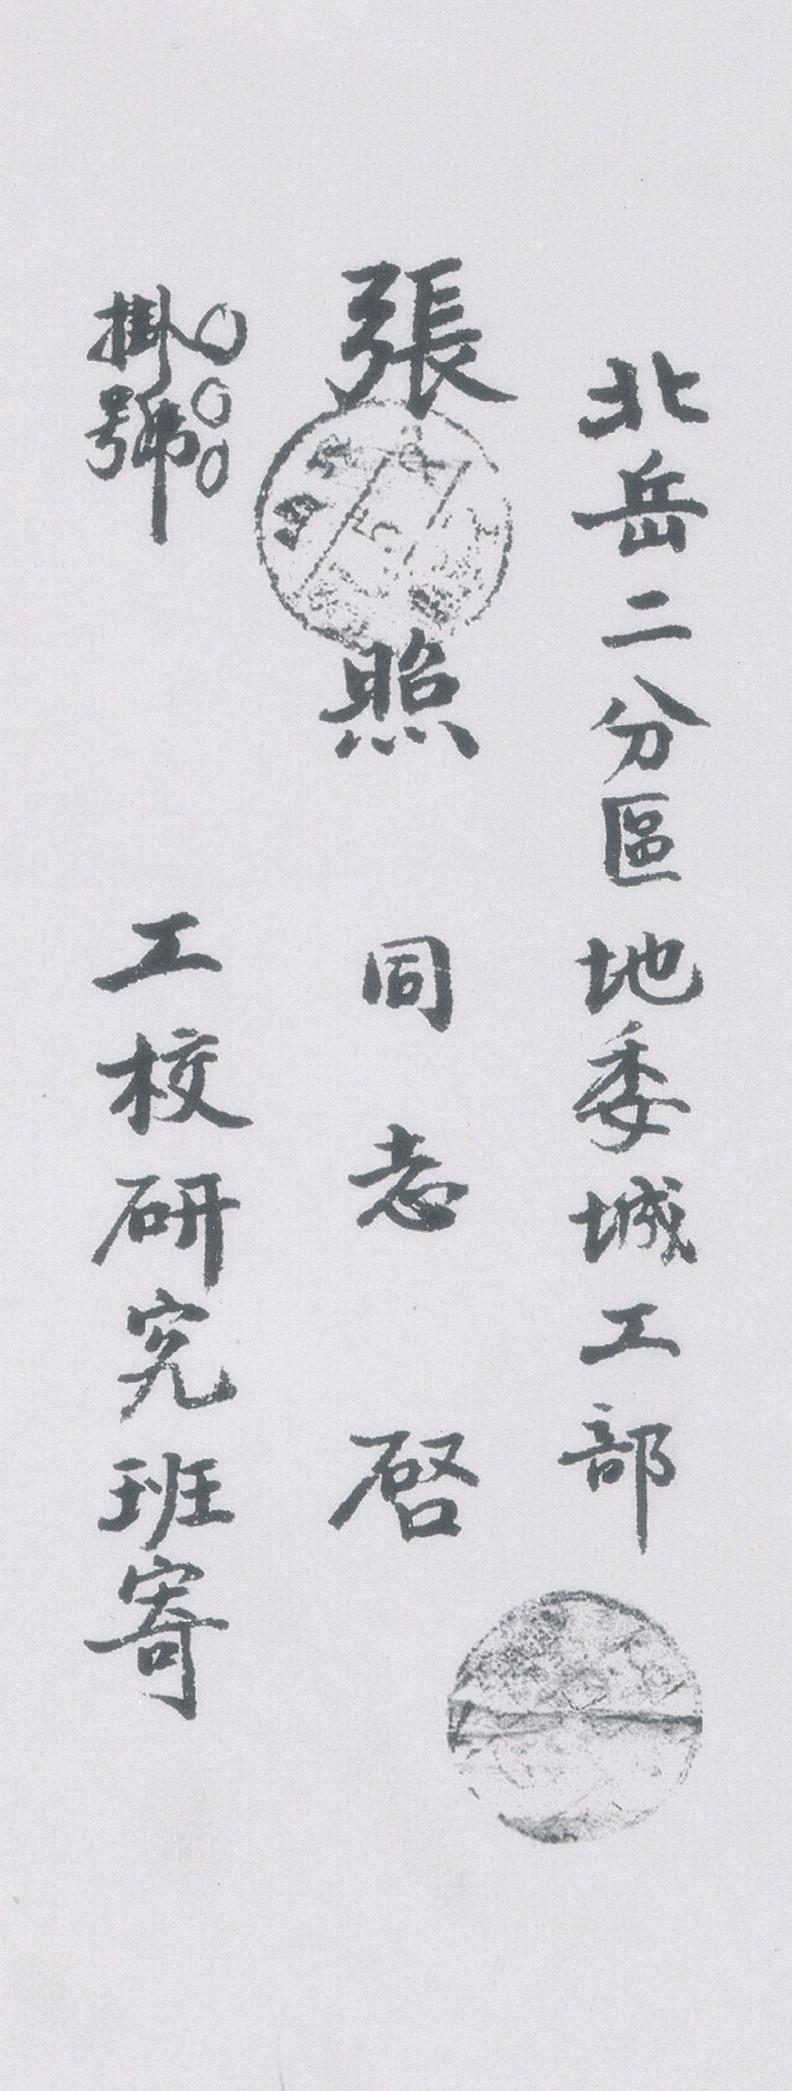 北岳二分區地委城工部
張照同志啓
掛號
工校研究班寄